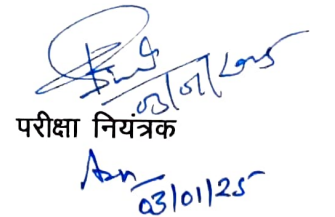 03/01/2025
परीक्षा नियंत्रक
03/01/25